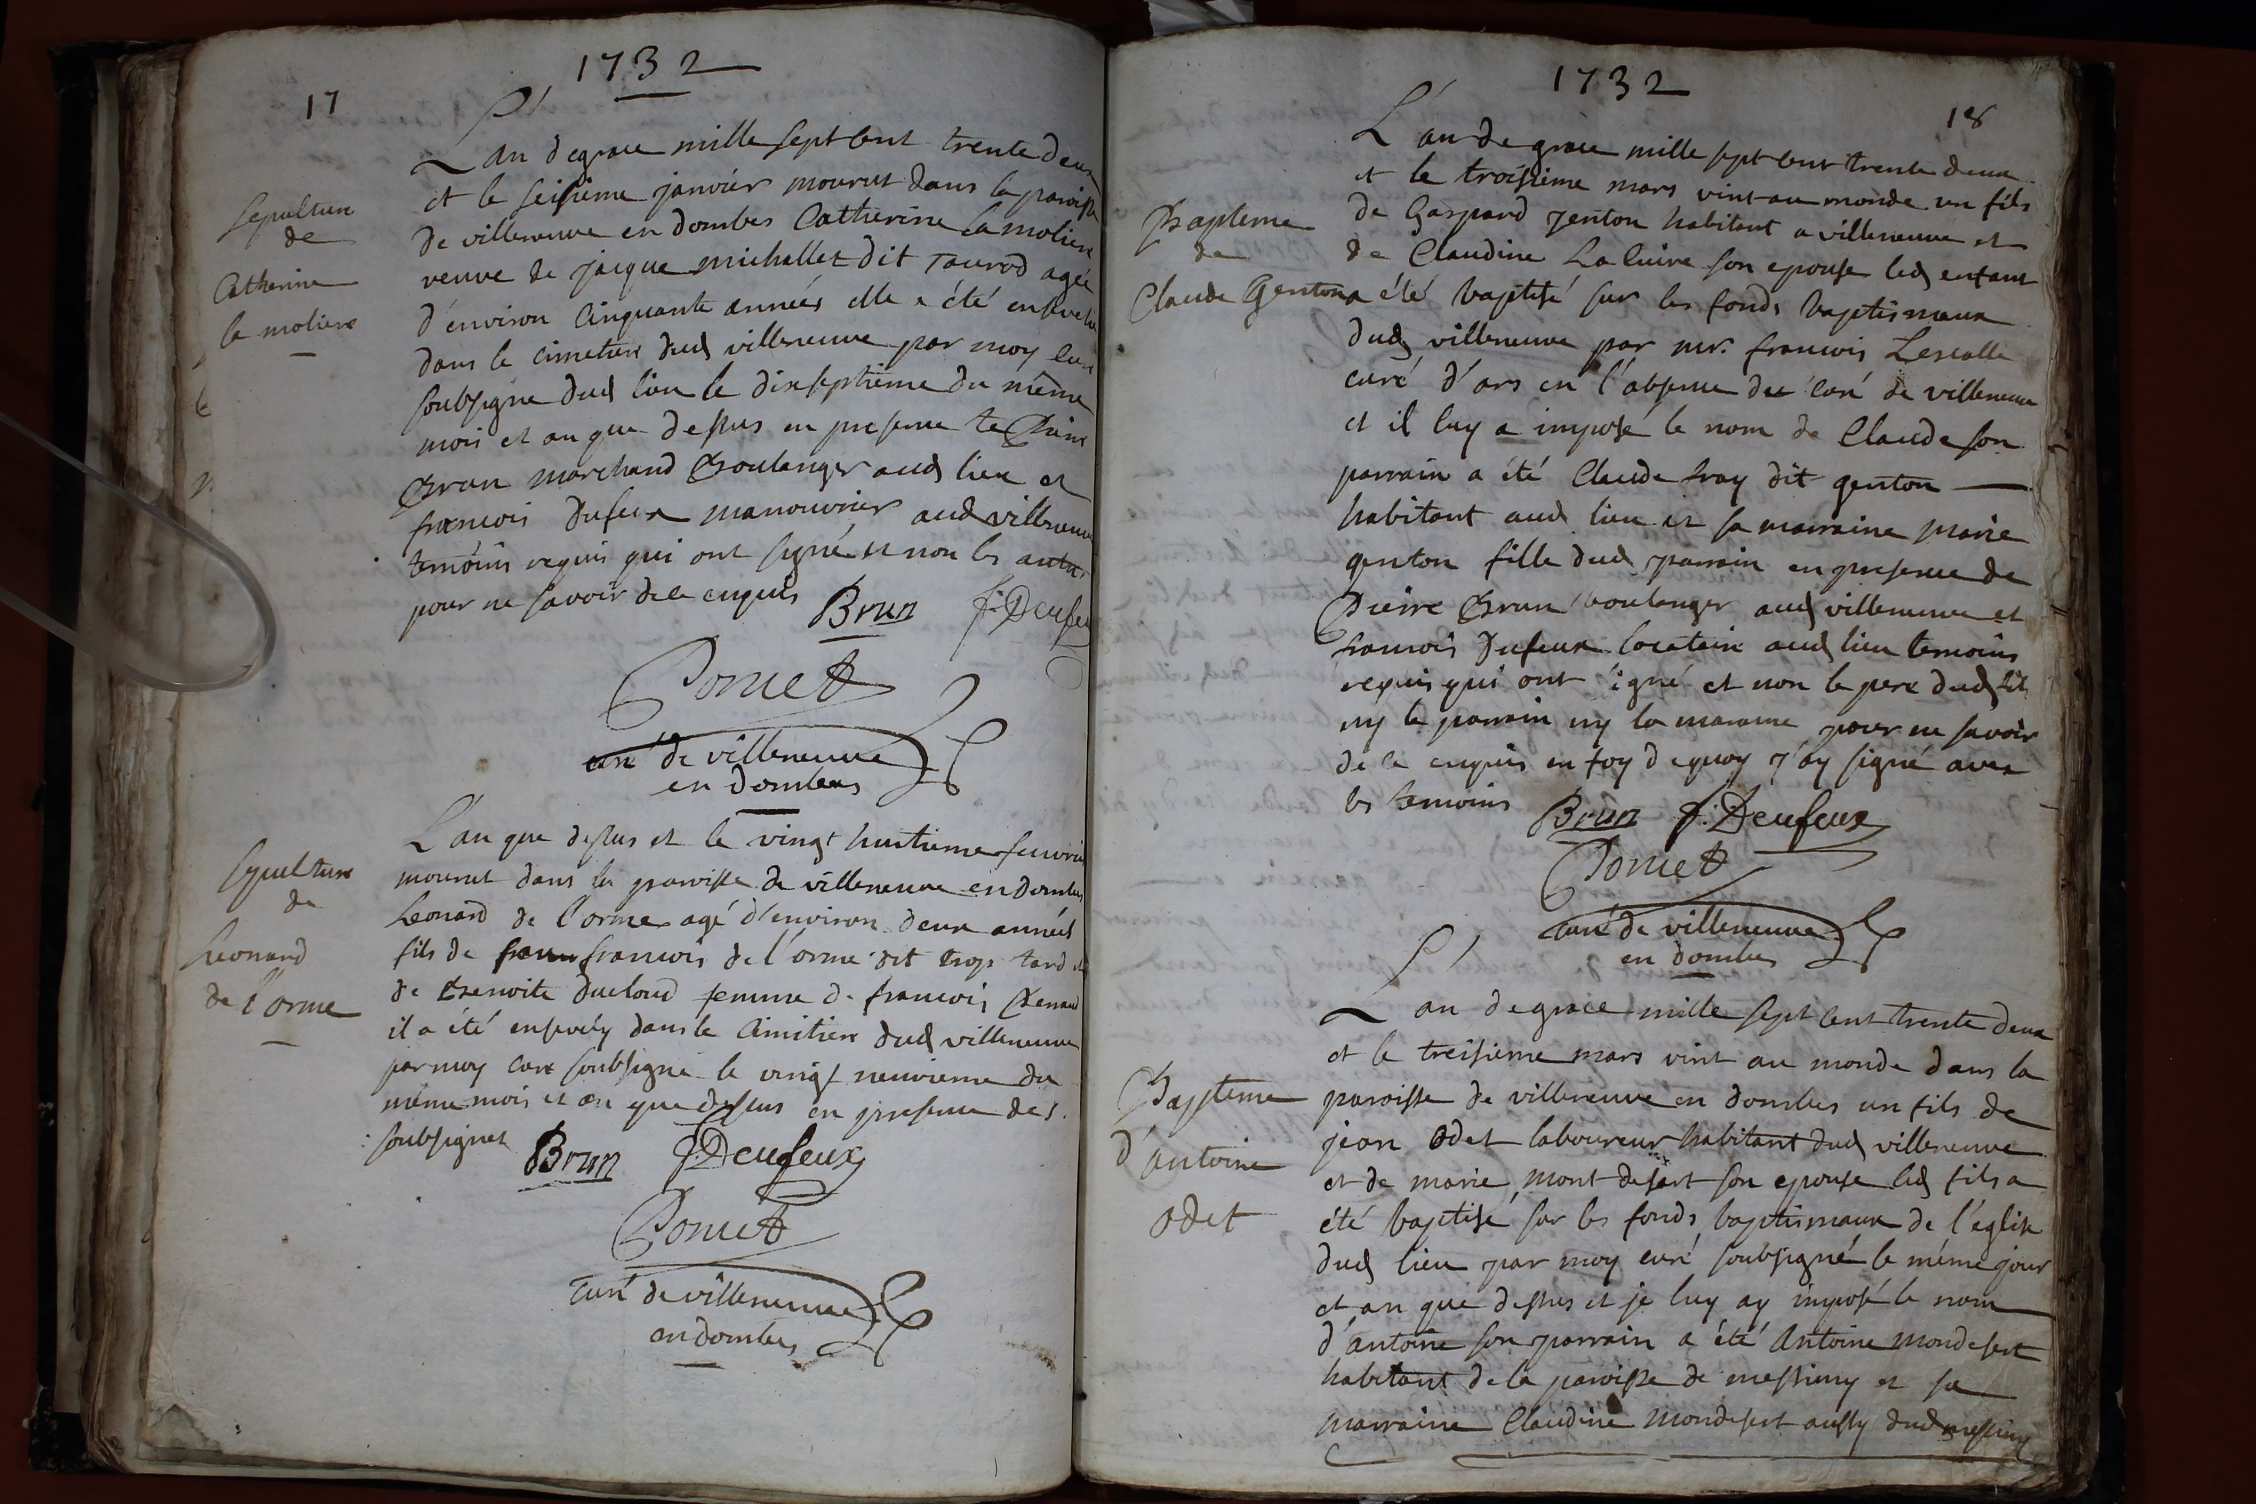 1732
17
L'an de grace mille sept cent trente deux
et le seisieme janvier mourut dans la paroisse
de villeneuve en dombes Catherine la moliere
veuve de jacque michallet dit agée
d'environ Cinquante années elle a été ensevelie
dans le cimetiere dud villeneuve par moy curé
soubsigné dud lieu le dixseptieme du même
mois et an que dessus en presence de Pierre
Brun marchand Boulanger aud lieu et
francois Dufeux manouvrier aud villeneuve
temoins requis qui ont signé et non les autres
pour ne savoir de ce enquis Brun f. Deufeux
Sepulture
de
Catherine
la moliere
Pomet
curé de villeneuve
en dombes
L'an que dessus et le vingt huitieme fevrier
mourut dans la paroisse de villeneuve en Dombes
Leonard de l'orme agé d'environ deux années
fils de francois de l'orme dit trop tard et
de Benoite Ducloud femme de francois
il a été ensevely dans le Cimitiere dud villeneuve
par moy curé soubsigné le vingt neuvieme du
même mois et an que dessus en presence des
soubsignes Brun f. Deufeux
Sepulture
de
Leonard
de l'orme
Pomet
curé de villeneuve
en dombes
1732
18
L'an de grace mille sept cent trente deux
et le troisieme mars vint au monde un fils
de Gaspard genton habitant a villeneuve et
de Claudine La Cuire son epouse led enfant
a été baptisé sur les fonds baptismaux
dud villeneuve par mr. francois Lescalle
curé d'ars en l'absence du curé de villeneuve
et il luy a imposé le nom de Claude son
parrain a été Claude fray dit genton
habitant aud lieu et sa marraine marie
genton fille dud parrain en presence de
Pierre Brun boulanger aud villeneuve et
francois Dufeux locataire aud lieu temoins
requis qui ont signé et non le pere dud fils
ny le parrain ny la maraine pour ne savoir
de ce enquis en foy de quoy j'ay signé avec
les temoins Brun f. Deufeux
Bapteme
de
Claude Genton
Pomet
curé de villeneuve
en dombes
L'an de grace mille sept cent trente deux
et le treisieme mars vint au monde dans la
paroisse de villeneuve en dombes un fils de
jean odet laboureur habitant dud villeneuve
et de marie mont desert son epouse led fils a
été baptisé sur les fonds baptismaux de l'eglise
dud lieu par moy curé soubsigné le même jour
et an que dessus et je luy ay imposé le nom
d'antoine son parrain a été Antoine mondesert
habitant de la paroisse de messimy et sa
marraine Claudine mondesert aussy dud messimy
Bapteme
d'antoine
odet